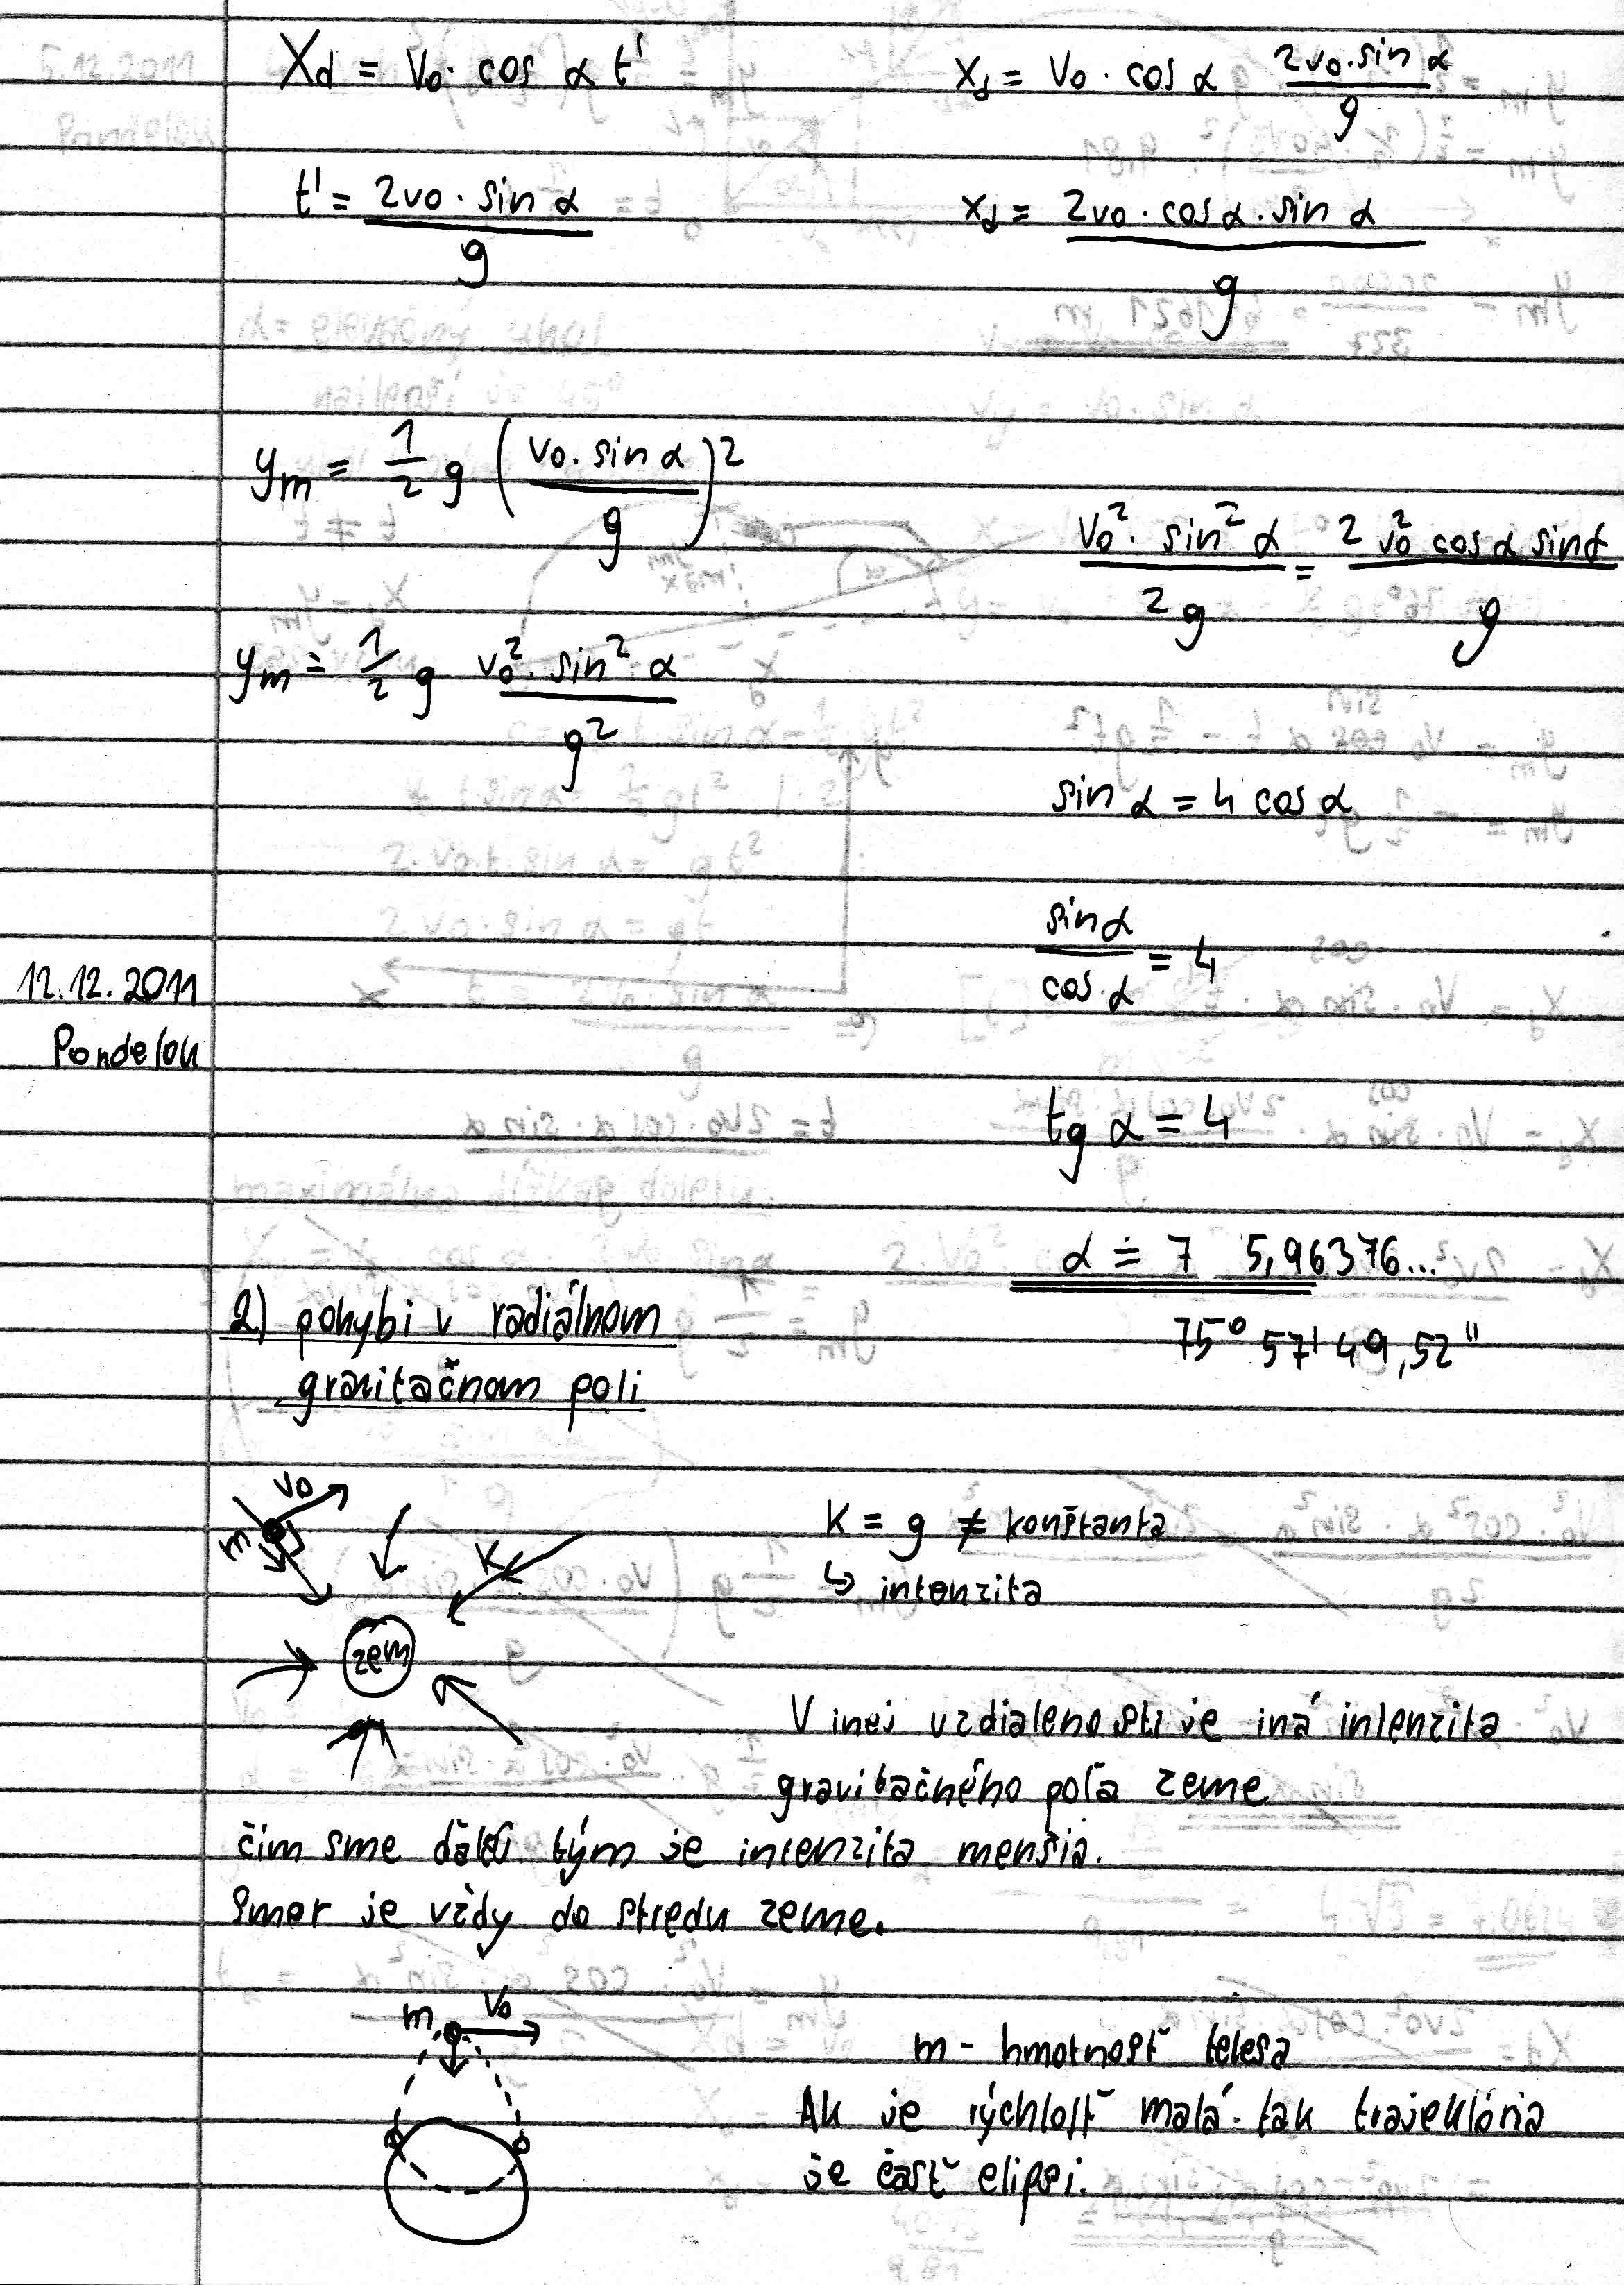 Xd = v0 · cos α t'
xd = v0 · cos α 2v0 · sin α / g
t' = 2v0 · sin α / g
xd = 2v0 · cos α · sin α / g
ym = 1/2 g (v0 · sin α / g)²
v0² · sin² α / 2g = 2 v0² cos α sin α / g
ym = 1/2 g v0² · sin² α / g²
sin α = 4 cos α
sin α / cos α = 4
12.12.2011
Pondelok
tg α = 4
α ≐ 7 5,96376...
75° 57' 49,52"
2) pohybi v radiálnom
gravitačnom poli
v0
m
K
zem
K = g ≠ konštanta
↳ intenzita
V inej vzdialenosti je iná intenzita
gravitačného poľa zeme
čim sme ďalej tým je intenzita menšia.
Smer je vždy do stredu zeme.
m v0
m - hmotnosť telesa
Ak je rýchlosť malá tak trajektória
je časť elipsi.